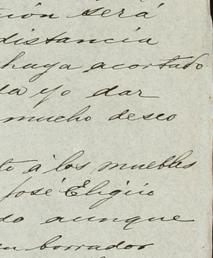 ción será
distancia
haya acortado
da yo dar
mucho deseo
to á los muebles
José Eligio
do aunque
un borrador